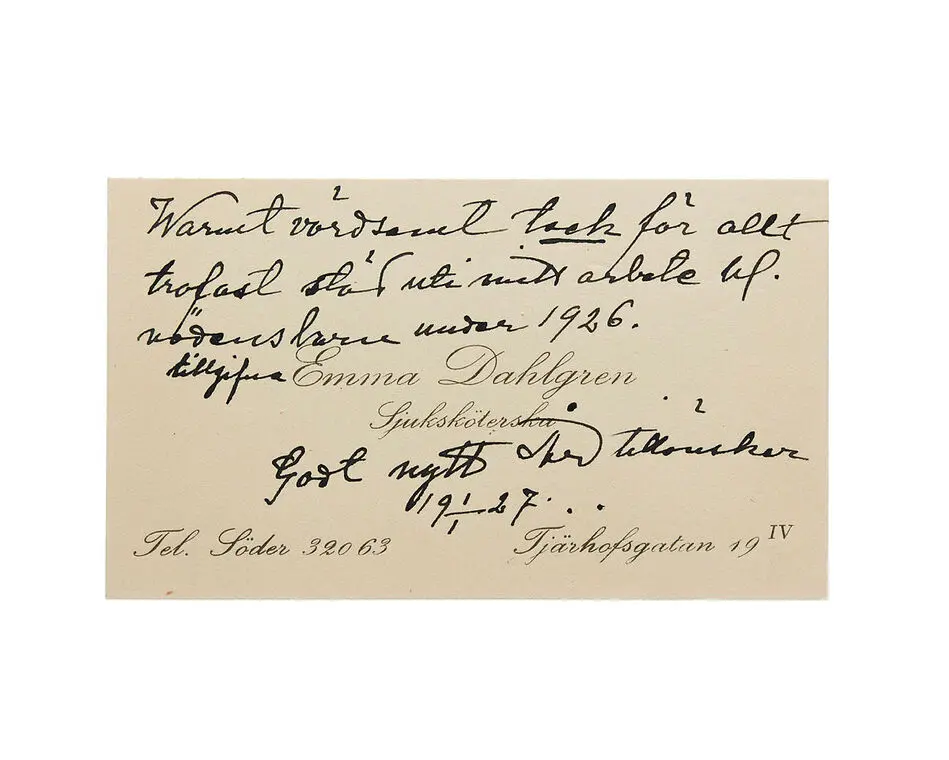 Warmt vördsamt tack för allt
trofast stöd uti mitt arbete bl.
nödens barn under 1926.
tillgifna Emma Dahlgren
Sjuksköterska
Godt nytt år tillönskes
19 1/1 27.
Tel. Söder 32063
Tjärhofsgatan 19 IV